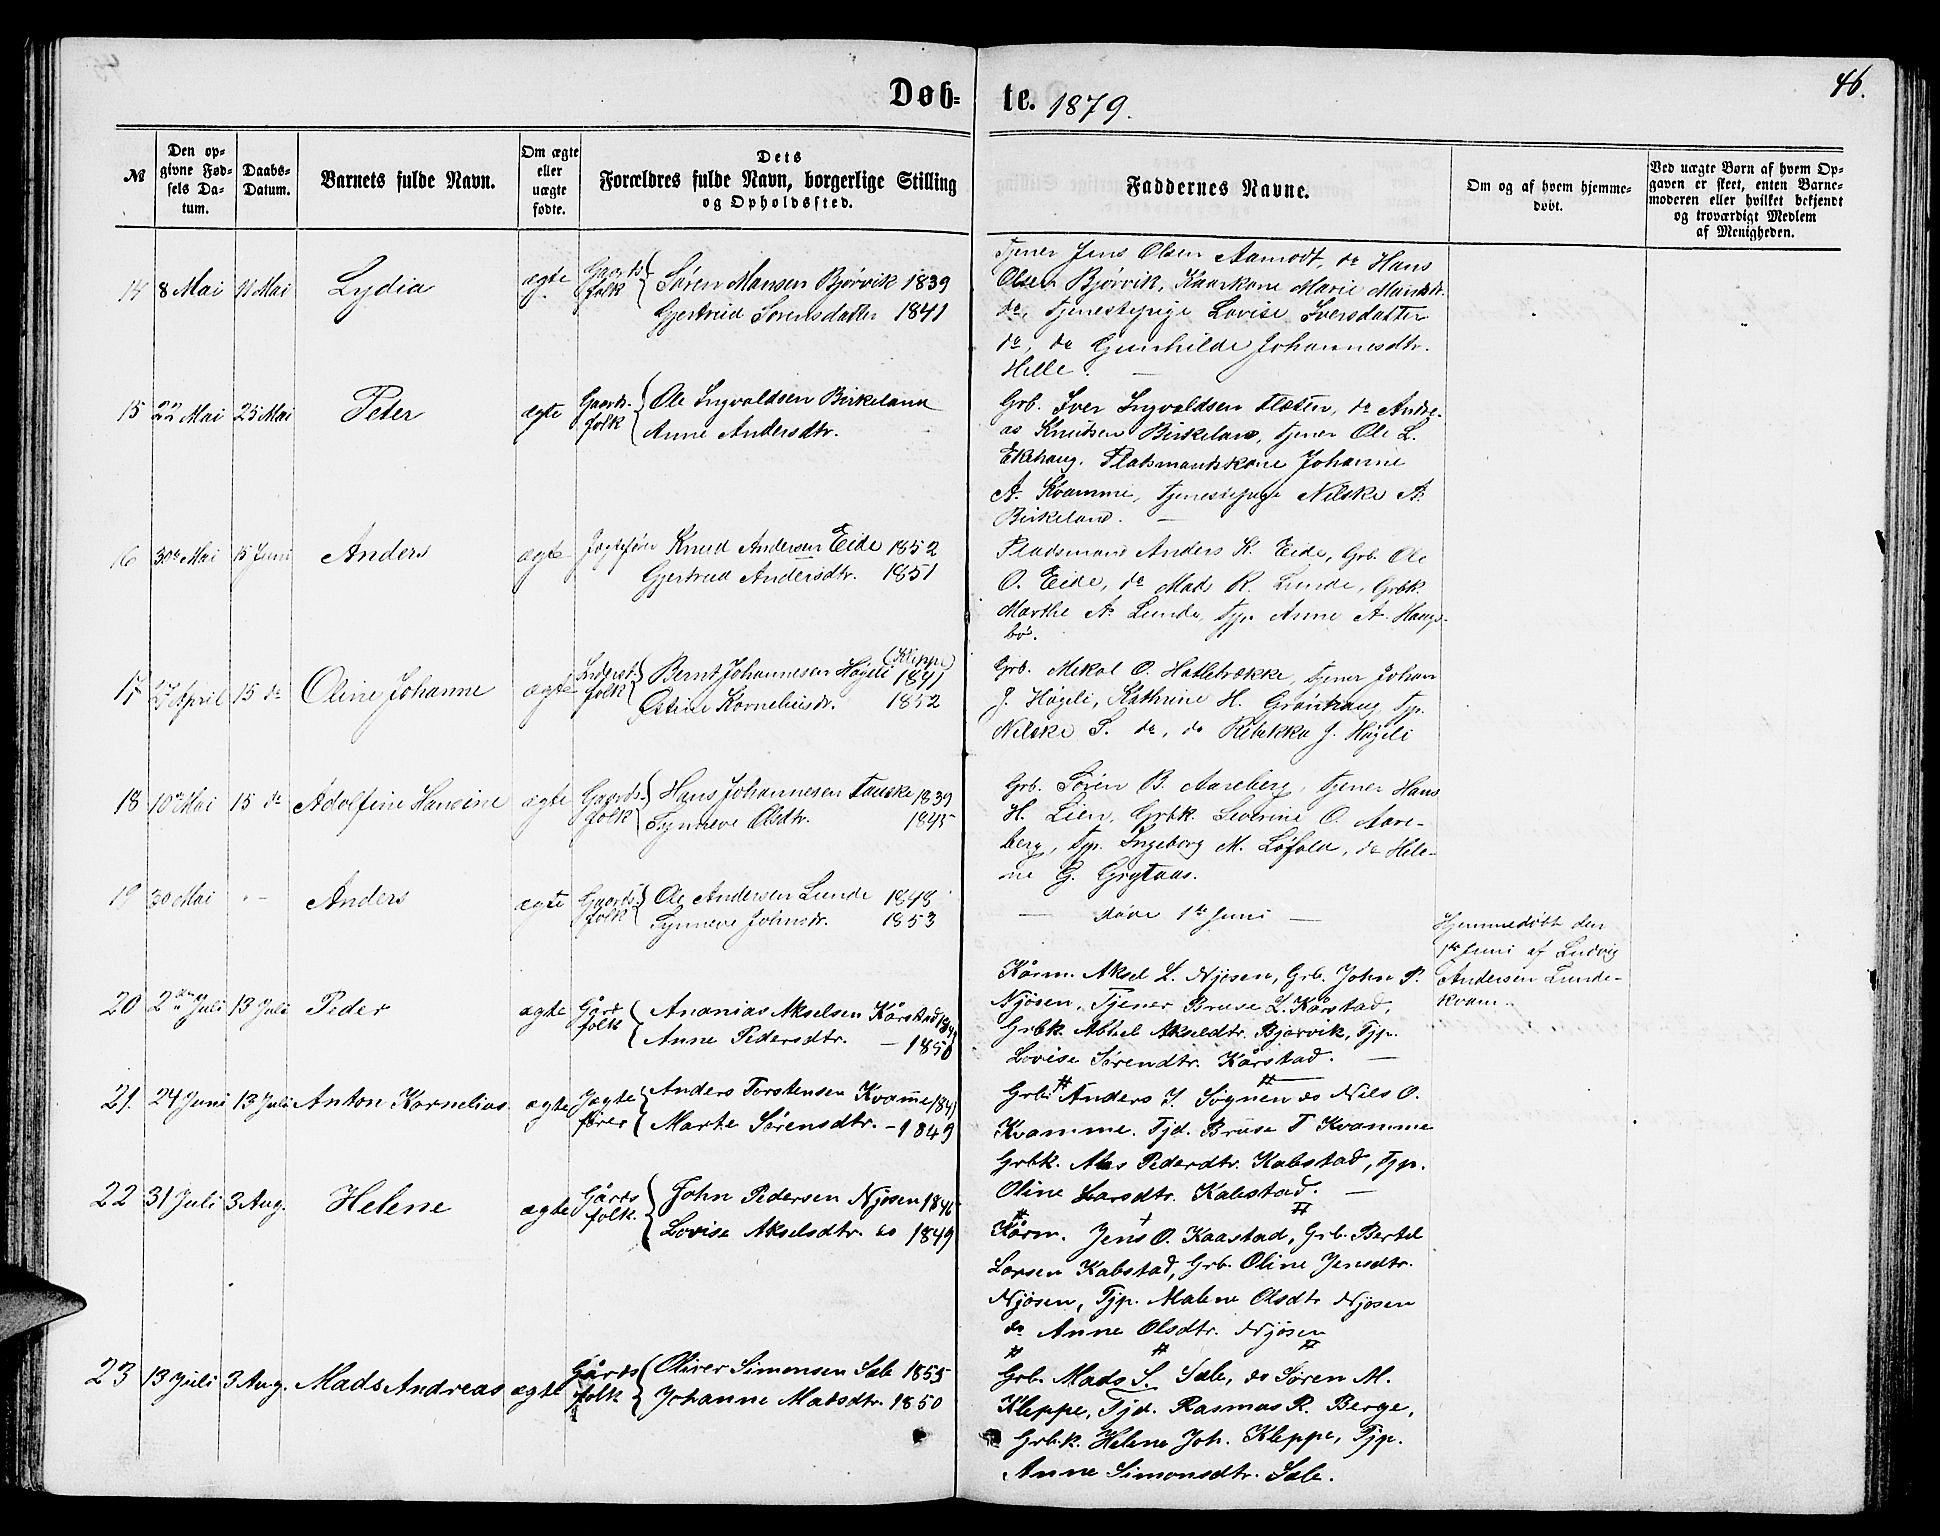 Døb-
te. 1879.
46.
№
Den op-
givne Fød-
sels Da-
tum.
Daabs-
Datum.
Barnets fulde Navn.
Om ægte
eller
uægte
fødte.
Dets
Forældres fulde Navn, borgerlige Stilling
og Opholdssted.
Faddernes Navne.
Om og af hvem hjemme-
døbt.
Ved uægte Børn af hvem Op-
gaven er skeet, enten Barne-
moderen eller hvilket bekjendt
og troværdigt Medlem
af Menigheden.
14 8 Mai 11 Mai Lydia ægte Gaards-
folk
Søren Monsen Bjørvik 1839
Gjertrud Sørensdatter 1841
Tjener Jens Olsen Aamodt, do Hans
Olsen Bjørvik, Kaarkone Marie
do, Tjenestepige Lovise Iversdatter
do, do Gunhilde Johannesdtr.
Helle.
15 22 Mai 25 Mai Peter ægte Gaards-
folk
Ole Ingvaldsen Birkeland
Anne Andersdtr.
Grb. Iver Ingvaldsen Flæten, do Andre-
as Knutsen Birkeland, Tjener Ole L.
Ekehaug, Pladsmandskone Johanne
A. Kvamme, Tjenestepige Nilske A.
Birkeland.
16 30te Mai 15 Juni Anders ægte Jægtefører
Knud Andersen Eide 1852
Gjertrud Andersdtr. 1851
Pladsmand Anders K. Eide, Grb. Ole
O. Eide, do Mads R. Lunde, Grbk.
Marthe A. Lunde, Tjp. Anne A. Haugs-
bø.
17 27 April 15 do Oline Johanne ægte Inderst-
folk
(Kleppe)
Bernt Johannesen Høgeli 1841
Kornelius dr. 1852
Grb. Mikal O. Hatlebrække, Tjener Johan
J. Høgeli, Kathrine H. Grønhaug, Tjp.
Nilske S. do, do Rebekka J. Høgeli
18 10de Mai 15 do Adolfine Hansine ægte Gaards-
folk
Hans Johannesen Tauske 1839
Synneve Olsdtr. 1845
Grb. Søren B. Aareberg, Tjener Hans
H. Lien, Grbk. Severine O. Aare-
berg, Tjp. Ingeborg M. Løfald, do Hele-
ne G. Grytaas.
19 30 Mai - - Anders ægte Gaards-
folk
Ole Andersen Lunde 1848
Synneve Johnsdr. 1853
— døde 1te Juni —
Hjemmedøbt den
1te Juni af Ludvig
Andersen Lunde-
kvam.
20 2den Juli 13 Juli Peder ægte Gård
folk
Ananias Akselsen Kårstad
Anne Pedersdtr. — 1850
Kårm. Aksel L. Njøsen, Grb. John P.
Njøsen, Tjener Bruse L. Kårstad,
Grbk. Abbel Akseldtr. Bjørvik, Tjp.
Lovise Sørendtr. Kårstad. —
21. 24 Juni 13 Juli Anton Kornelius ægte Jægte-
fører
Anders Torstensen Kvamme 1841
Marte Sørensdtr. - 1849
Grb. Anders I. Sognen do Nils O.
Kvamme. Tjd. Bruse T Kvamme
Grbk. Pederdtr. Kabstad, Tjp.
Oline Larsdtr. Kabstad. —
22 31 Juli 3 Aug. Helene ægte Gårds
folk.
John Pedersen Njøsen 1846
Lovise Akselsdtr. do 1849
Kårm. Jens O. Kaastad, Grb. Bertel
Larsen Kabstad, Grb. Oline Jensdtr.
Njøsen, Tjp. Malene Olsdtr Njøsen
do Anne Olsdtr. Njøsen
23 13 Juli 3 Aug. Mads Andreas ægte Gårds
folk
Oliver Simonsen Sale 1855
Johanne Matsdtr. 1850
Grb. Mads S. Sale, do Søren M.
Kleppe, Tjd. Rasmus R. Berge,
Grbk. Helene Joh. Kleppe, Tjp.
Anne Simonsdtr. Sale.